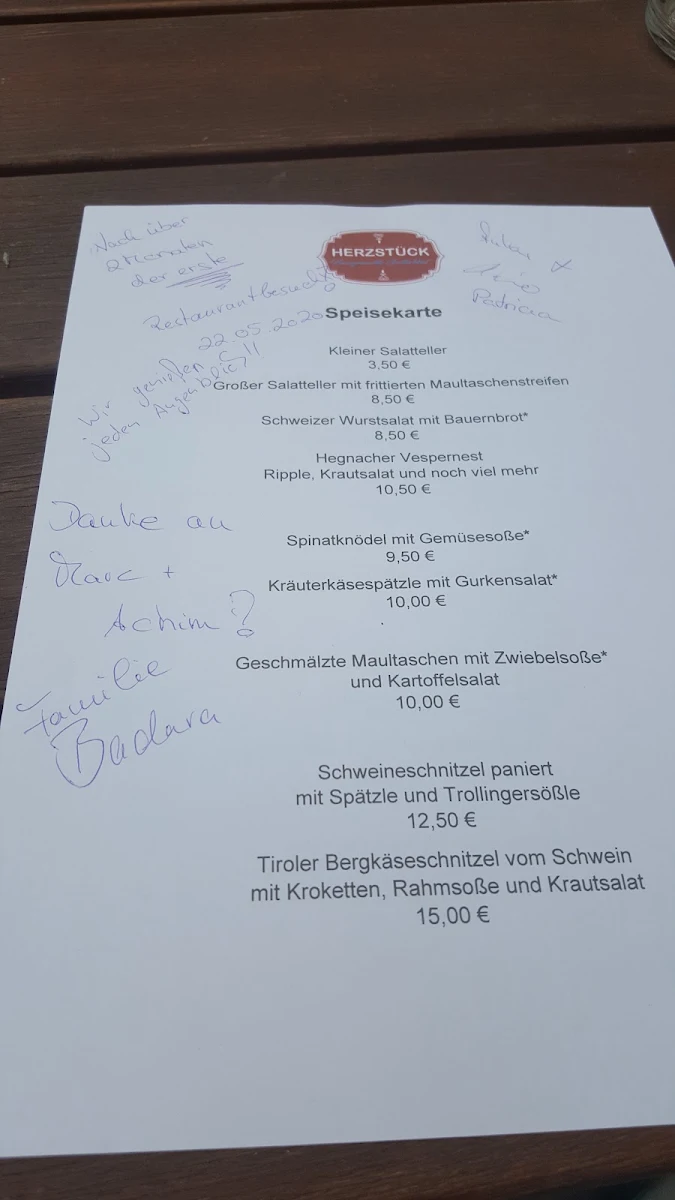 Nach über
2 Monaten
der erste
Restaurantbesuch!
22.05.2020
Wir genießen
jeden Augenblick!!
Patricia
HERZSTÜCK
Speisekarte
Kleiner Salatteller
3,50 €
Großer Salatteller mit frittierten Maultaschenstreifen
8,50 €
Schweizer Wurstsalat mit Bauernbrot*
8,50 €
Hegnacher Vespernest
Ripple, Krautsalat und noch viel mehr
10,50 €
Danke an
Marc +
Achim!
Familie
Badara
Spinatknödel mit Gemüsesoße*
9,50 €
Kräuterkäsespätzle mit Gurkensalat*
10,00 €
Geschmälzte Maultaschen mit Zwiebelsoße*
und Kartoffelsalat
10,00 €
Schweineschnitzel paniert
mit Spätzle und Trollingersößle
12,50 €
Tiroler Bergkäseschnitzel vom Schwein
mit Kroketten, Rahmsoße und Krautsalat
15,00 €